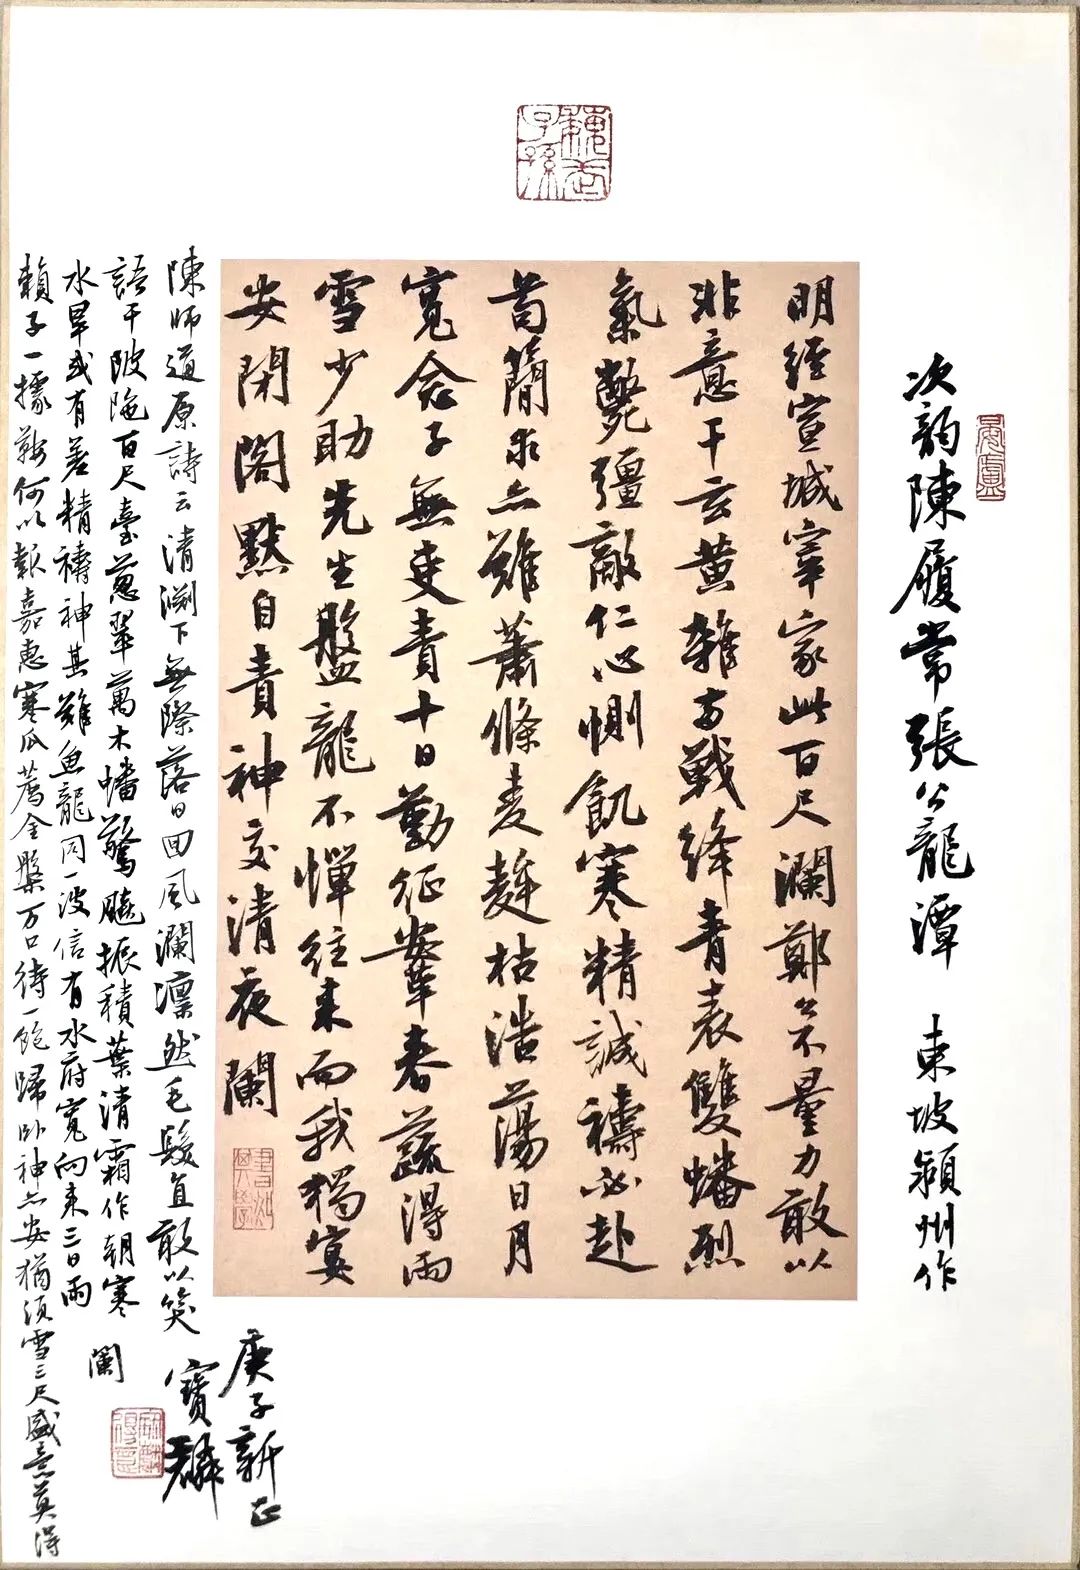 次韵陳履常張公龍潭 東坡潁州作
明經宣城宰家此百尺瀾鄭公不量力敢以
非意干玄黃雜兩戰絳青表雙蟠烈
氣斃彊敵仁心惻飢寒精誠禱必赴
苟簡求亦難蕭條麦麰枯浩蕩日月
寬念子無吏責十日勤征鞌春蔬得雨
雪少助先生盤龍不憚往来而我獨宴
安閉閤默自責神交清夜闌
庚子新正
寶麟
陳師道原詩云清淵下無際落日回風瀾凛然毛髮直敢以笑
語干陂陁百尺臺葱翠萬木蟠驚飈振積葉清霜作朝寒
水旱或有差精禱神其難魚龍同一波信有水府寬向来三日雨
賴子一據鞍何以報嘉惠寒瓜薦金盤万口待一飽歸卧神亦安猶須雪三尺盛意莫得
闌